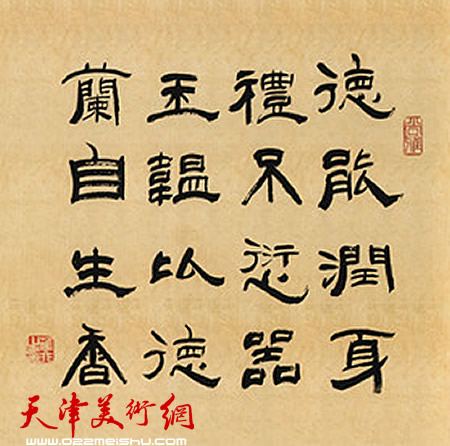 德能潤身
禮不愆器
玉韞以德
蘭自生香
天津美術網
www.022meishu.com